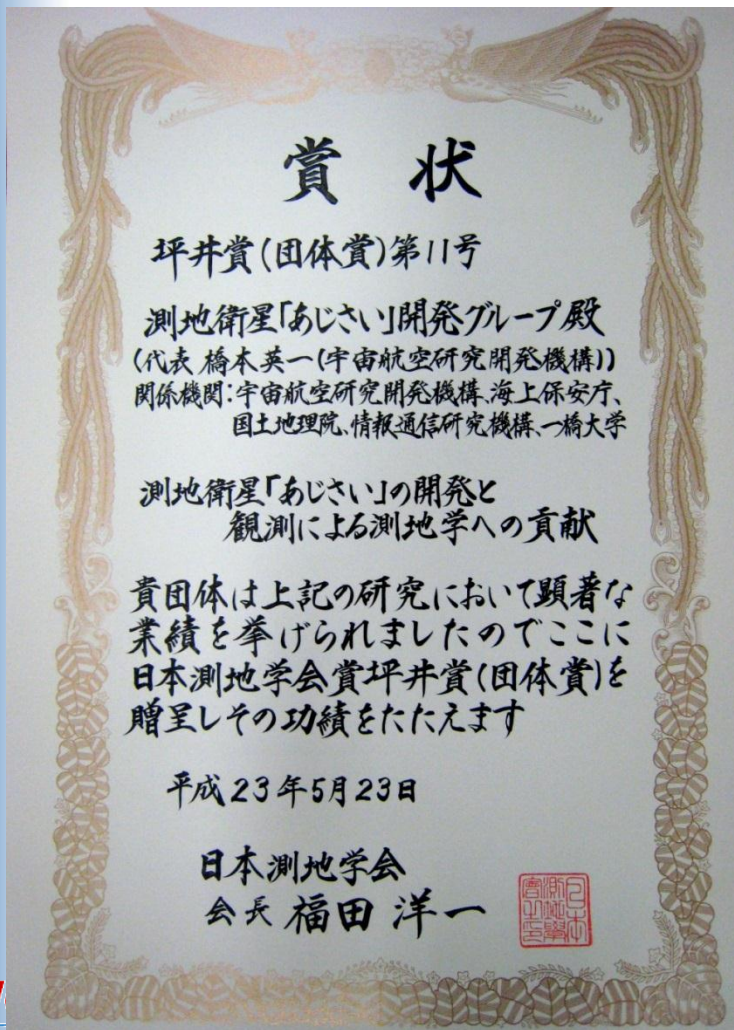 賞 状
坪井賞(団体賞)第11号
測地衛星「あじさい」開発グループ殿
(代表 橋本英一(宇宙航空研究開発機構))
関係機関:宇宙航空研究開発機構、海上保安庁、
国土地理院、情報通信研究機構、一橋大学
測地衛星「あじさい」の開発と
観測による測地学への貢献
貴団体は上記の研究において顕著な
業績を挙げられましたのでここに
日本測地学会賞坪井賞(団体賞)を
贈呈しその功績をたたえます
平成23年5月23日
日本測地学会
会長 福田洋一